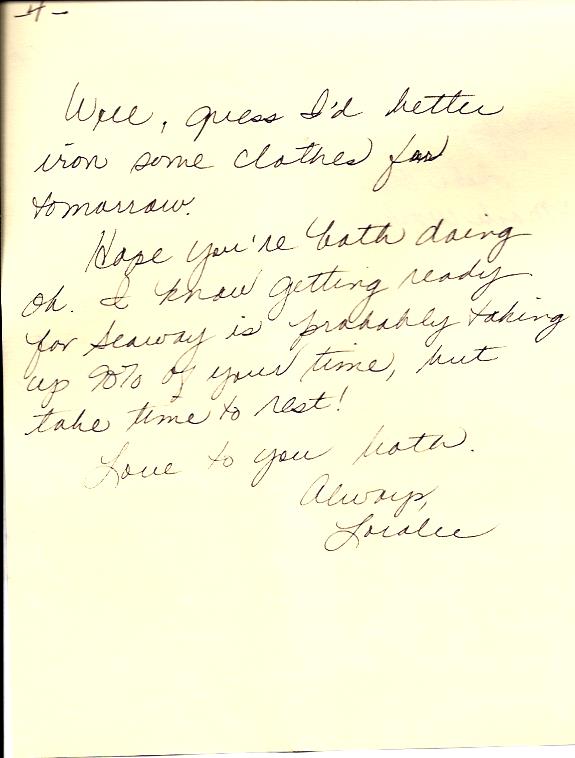 -4-
Well, guess I'd better
iron some clothes for
tomorrow.
Hope you're both doing
ok. I know getting ready
for Seaway is probably taking
up 90% of your time, but
take time to rest!
Love to you both.
Always,
Loralee